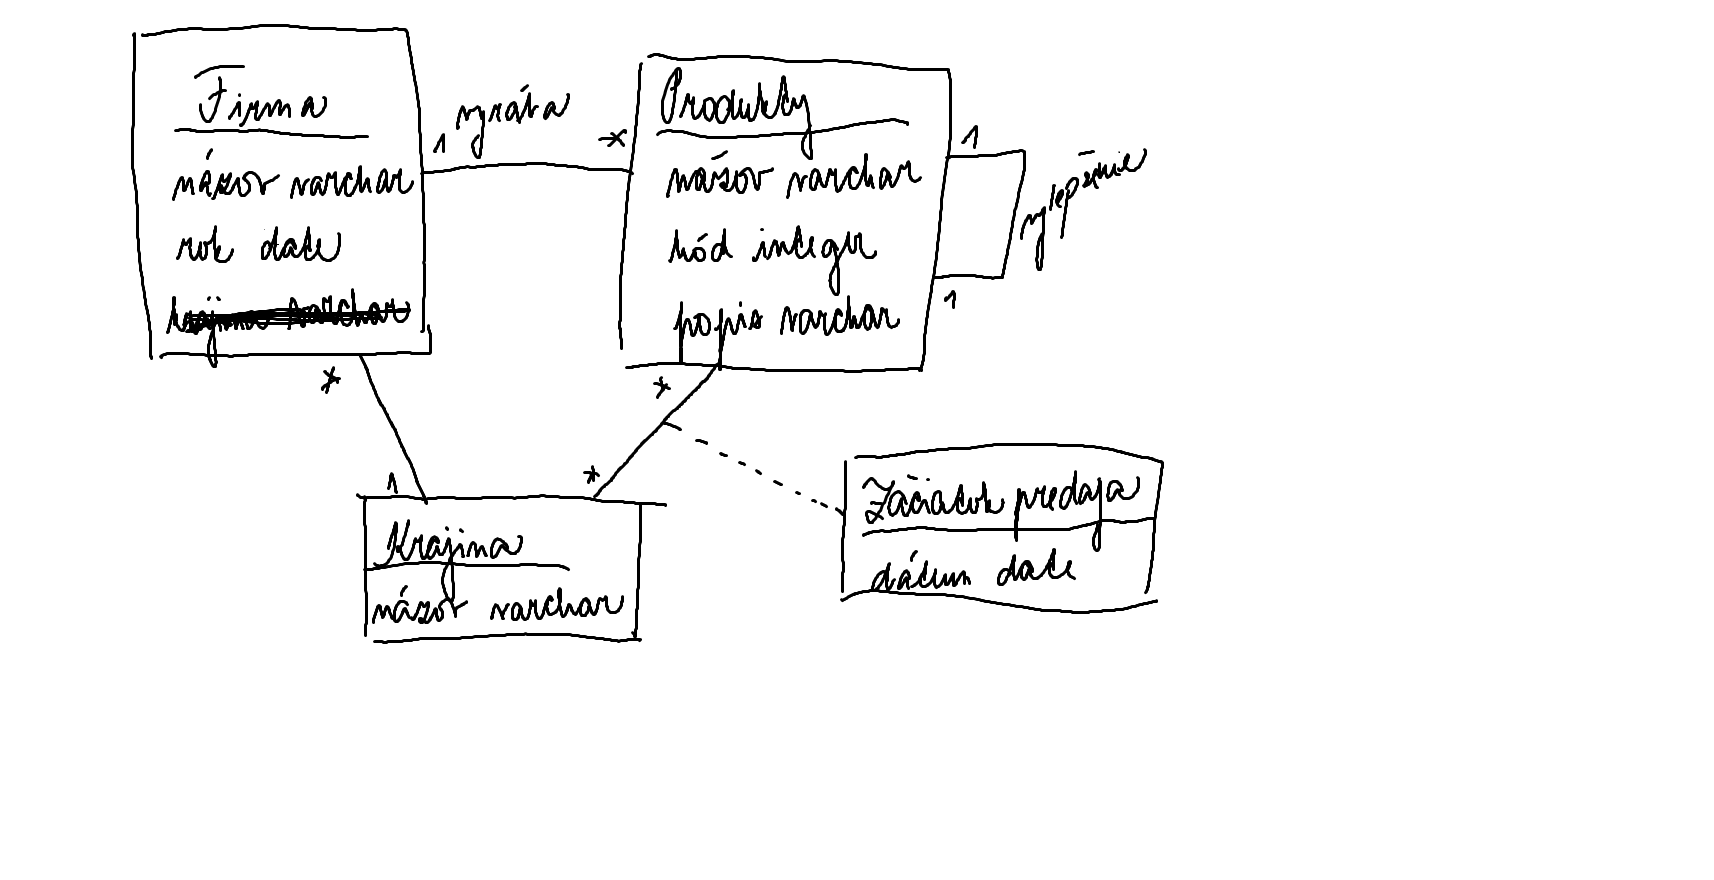 Firma
názov varchar
rok date
krajina varchar
1 vyrába *
Produkty
názov varchar
kód integer
popis varchar
1
vylepšenie
1
*
1
*
*
Krajina
názov varchar
Začiatok predaja
dátum date